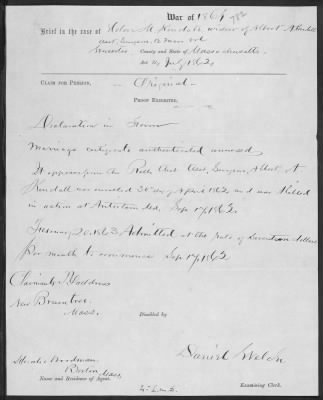 War of 1861
Brief in the case of Helen M. Kendall, widow of Albert A. Kendall
Asst. Surgeon, 12 Mass. Vol.
Worcester County and State of Massachusetts
Act July 1862
CLAIM FOR PENSION, Original
PROOF EXHIBITED,
Declaration in form
Marriage certificate authenticated annexed
It appears from the Rolls that Asst. Surgeon, Albert A.
Kendall was enrolled day of April 1862 and was killed
in action at Antietam Md, Sep 17, 1862.
1863, Admitted at the rate of Seventeen dollars
Per month to commence Sep 17, 1862
Claimants P.O. address
New Braintree
Mass.
Disabled by
Woodman
Boston, Mass.
Name and Residence of Agent.
Daniel Welch
Examining Clerk.